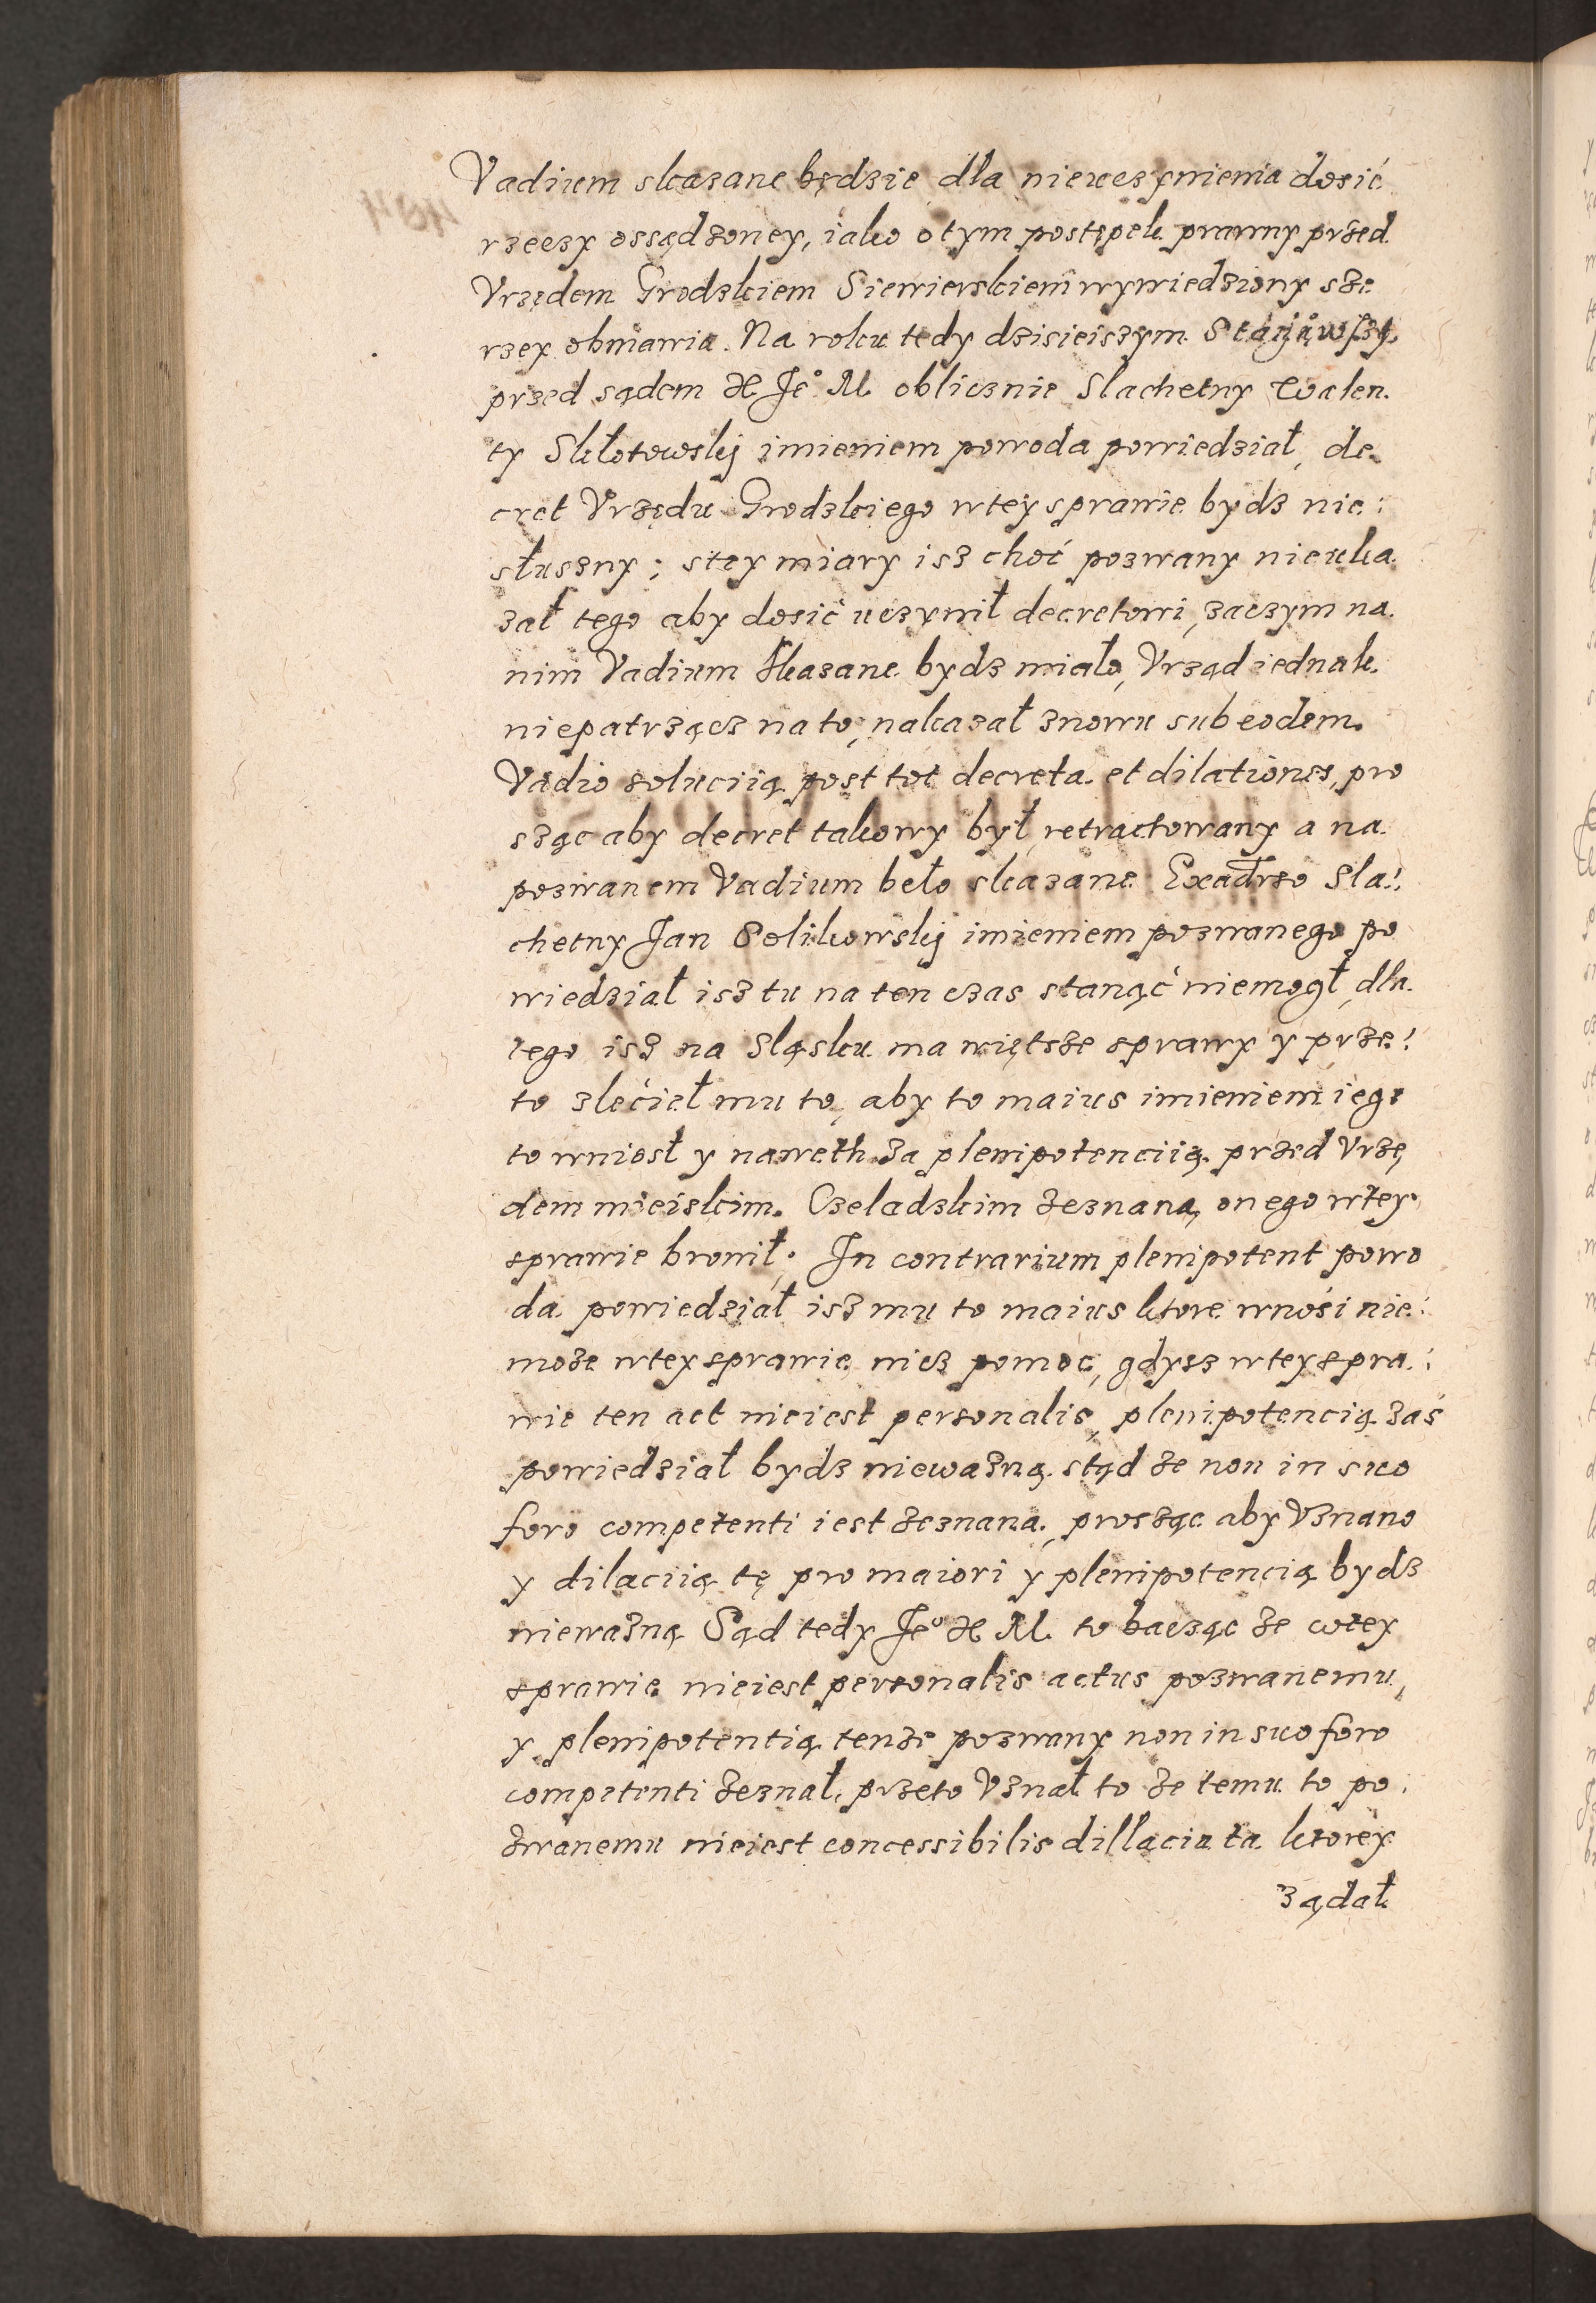 Vadium skazane będzie dla nieuczynienia dosić
rzeczy ossądzoney, iako o tym postępek prawny przed
Vrzędem Grodzkiem Siewierskiem wywiedziony sze
rzey obmawia. Na roku tedy dzisieiszym Stanąwszy
przed sądem X. Je° M. oblicznie Slachetny Walen
ty Skłotowskj imieniem powoda powiedział, de
cret Vrzędu Grodzkiego wtey sprawie bydz nie:
słuszny; stey miary isz choć pozwany nieuka
zał tego aby dosić uczynił decretowi, zaczym na
nim Vadium skazane bydz miało, Vrząd iednak
niepatrzącz na to, nakazał znowu sub eodem
Vadio soluciią post tot decreta et dilationes, pro
sząc aby decret takowy był retractowany a na
pozwanem Vadium beło skazane Exadrso Sla:
chetny Jan Solikowskj imieniem pozwanego po
wiedział isz tu na ten czas stanąć niemogł, dla
tego isz na Sląsku ma więtsze sprawy y prze:
to zleciel mu to, aby to maius imieniem iego
to wniosł y naweth za plenipotenciią przed Vrzę
dem mieiskim Czeladzkim zeznaną onego wtey
sprawie bronił. In contrarium plenipotent powo
da powiedział isz mu to maius ktore wnosi nie:
moze wtey sprawie nicz pomoc, gdysz wtey spra:
wie ten act nieiest personalis, plenipotencią zaś
powiedział bydz niewazną stąd ze non in suo
foro competenti iest zeznana, prosząc aby Vznano
y dilaciią tę pro maiori y plenipotencią bydz
niewazną Sąd tedy Je° X M. to bacząc ze wtey
sprawie nieiest personalis actus pozwanemu,
y plenipotentią tenze pozwany non in suo foro
competenti zeznał, przeto Vznał to ze temu to po
zwanemu nieiest concessibilis dillacia ta ktorey
ządał